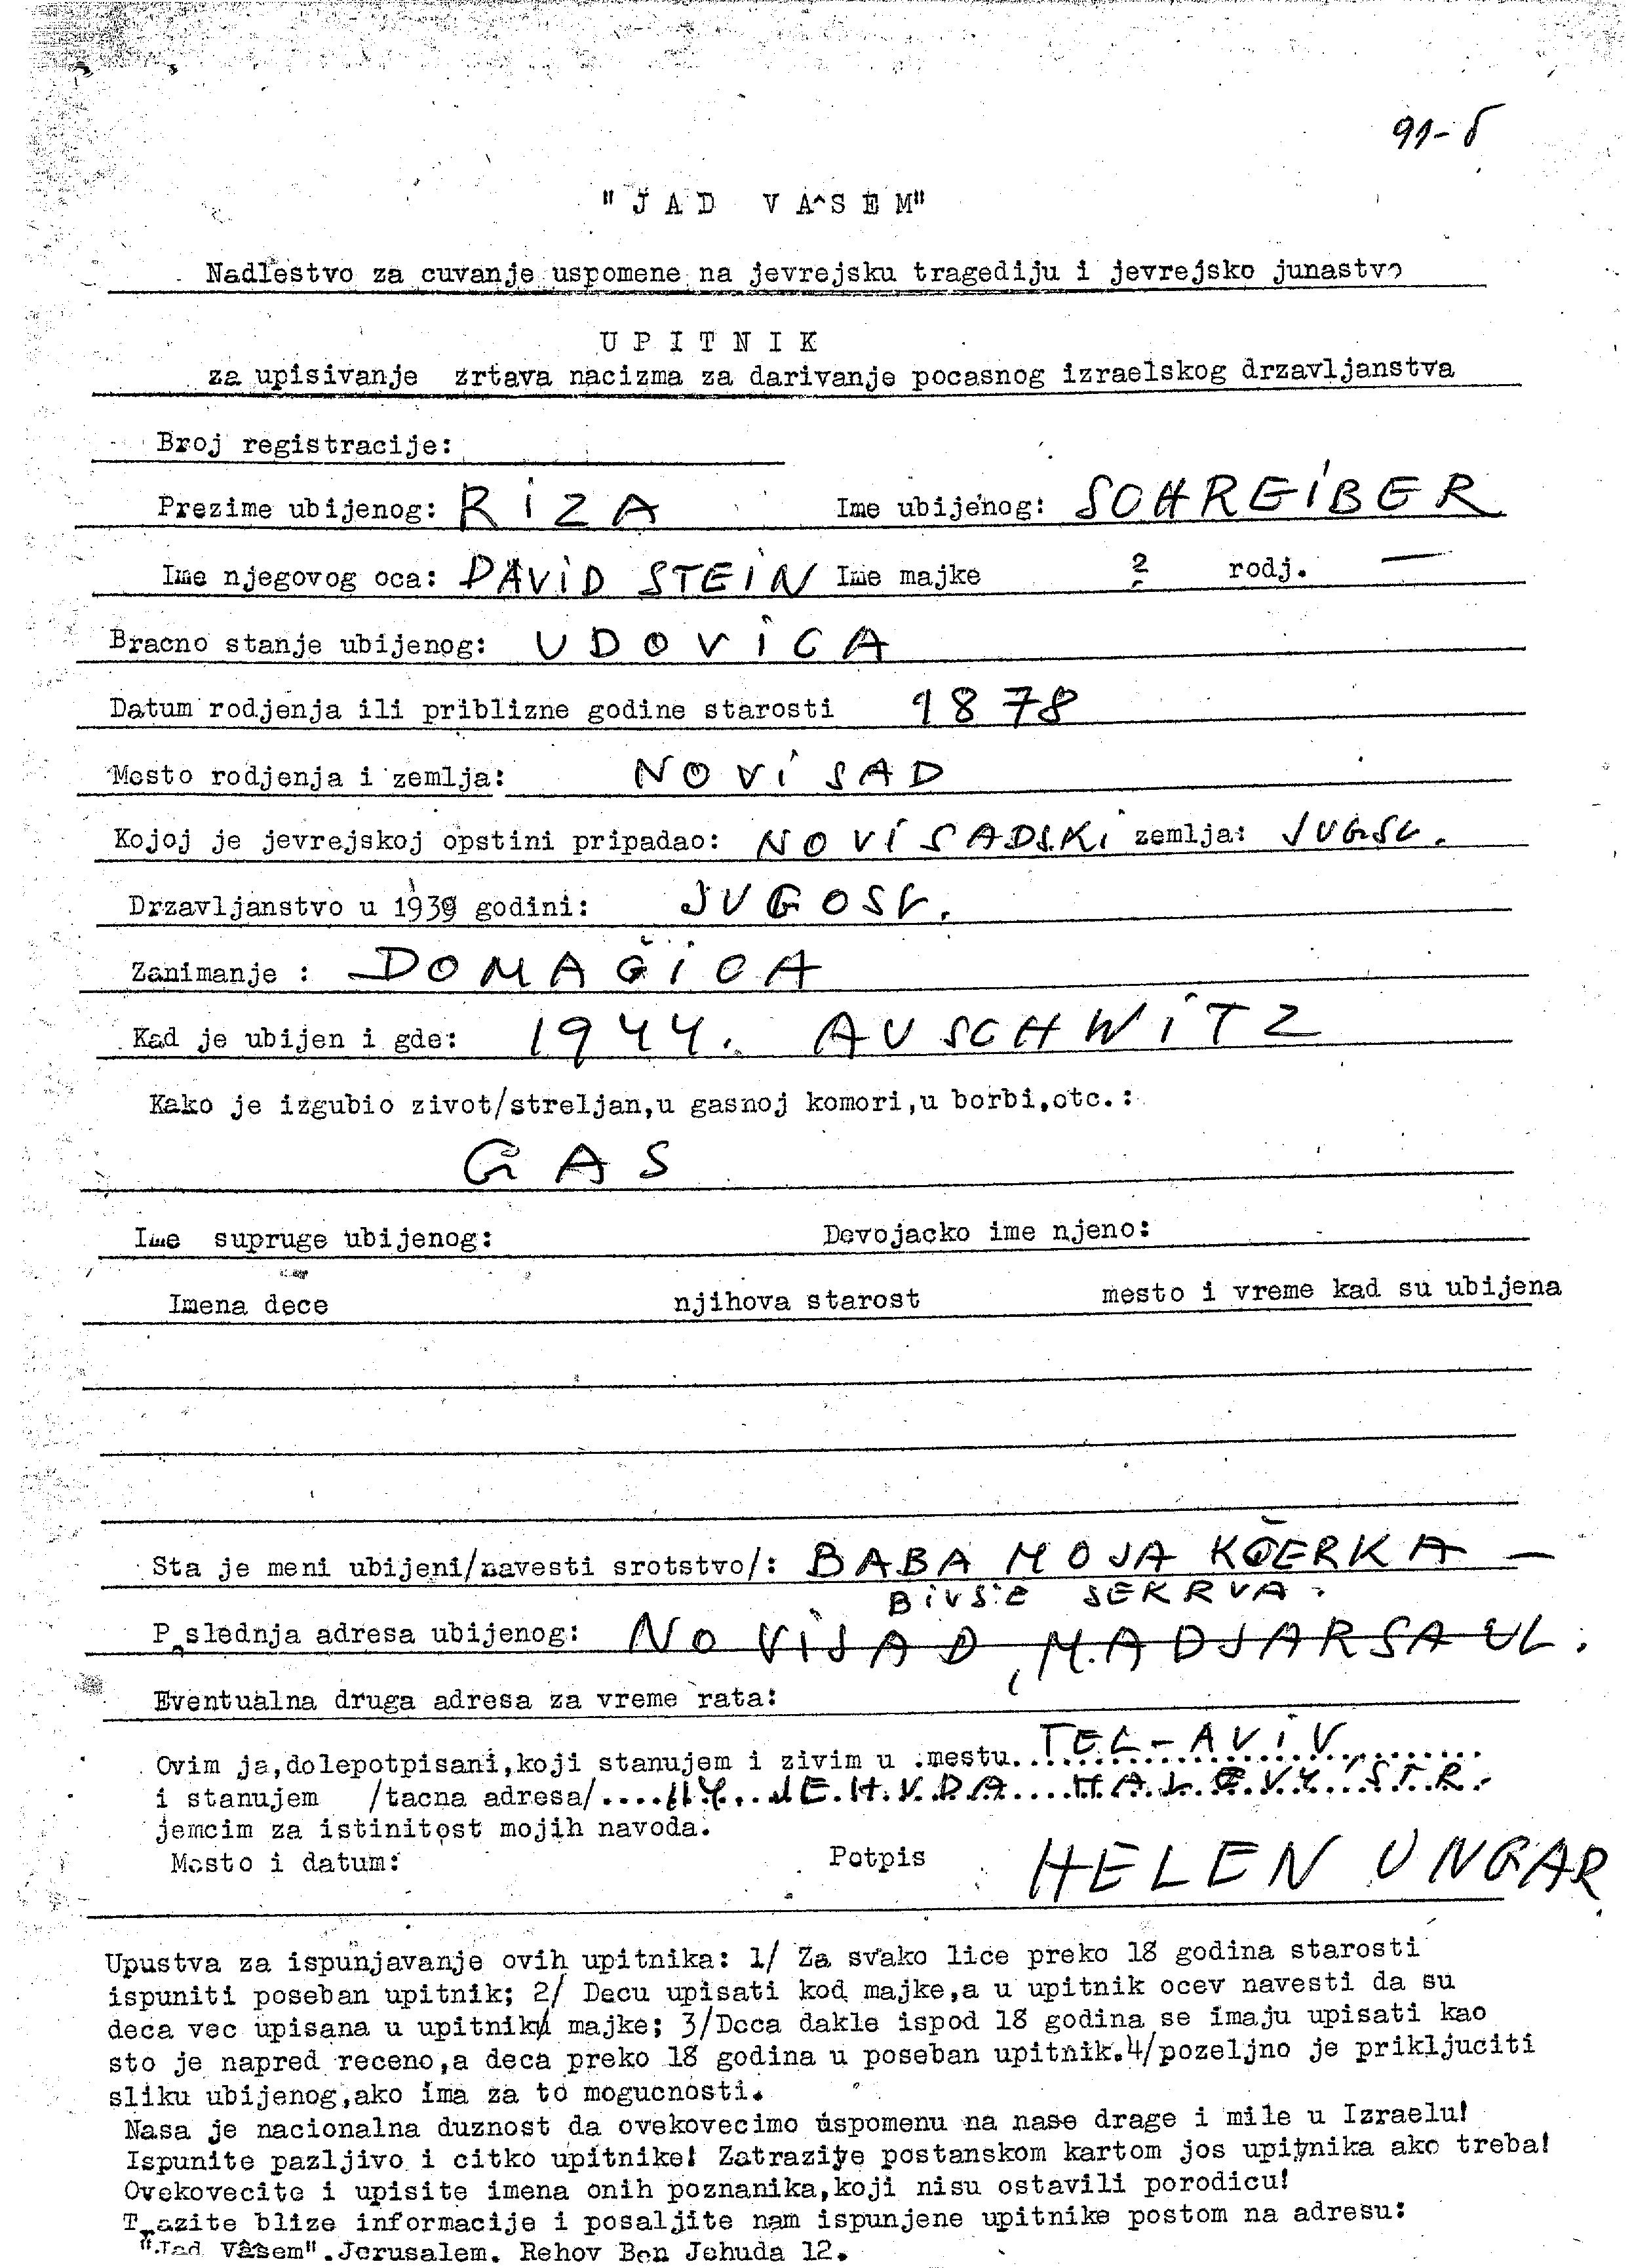 91-6
"JAD VA^SEM"
Nadlestvo za cuvanje uspomene na jevrejsku tragediju i jevrejsko junastvo
UPITNIK
za upisivanje zrtava nacizma za darivanje pocasnog izraelskog drzavljanstva
Broj registracije:
Prezime ubijenog: RIZA Ime ubijenog: SCHREIBER
Ime njegovog oca: DAVID STEIN Ime majke ? rodj. —
Bracno stanje ubijenog: UDOVICA
Datum rodjenja ili priblizne godine starosti 1878
Mesto rodjenja i zemlja: NOVI SAD
Kojoj je jevrejskoj opstini pripadao: NOVISADSKI zemlja: JUGSL.
Drzavljanstvo u 1939 godini: JUGOSL.
Zanimanje : DOMAČICA
Kad je ubijen i gde: 1944. AUSCHWITZ
Kako je izgubio zivot/streljan,u gasnoj komori,u borbi,etc.:
GAS
Ime supruge ubijenog: Devojacko ime njeno:
Imena dece njihova starost mesto i vreme kad su ubijena
Sta je meni ubijeni/navesti srotstvo/: BABA MOJA KČERKA —
BIVŠE SEKRVA.
Poslednja adresa ubijenog: NOVISAD, MADJARSA UL.
Eventualna druga adresa za vreme rata:
Ovim ja,dolepotpisani,koji stanujem i zivim u mestu..TEL-AVIV..
i stanujem /tacna adresa/.... JEHUDA HALEVY STR.
jemcim za istinitost mojih navoda.
Mesto i datum: Potpis HELEN UNGAR
Upustva za ispunjavanje ovih upitnika: 1/ Za svako lice preko 18 godina starosti
ispuniti poseban upitnik; 2/ Decu upisati kod majke,a u upitnik ocev navesti da su
deca vec upisana u upitniki majke; 3/Deca dakle ispod 18 godina se imaju upisati kao
sto je napred receno,a deca preko 18 godina u poseban upitnik.4/pozeljno je prikljuciti
sliku ubijenog,ako ima za to mogucnosti.
Nasa je nacionalna duznost da ovekovecimo uspomenu na nase drage i mile u Izraelu!
Ispunite pazljivo i citko upitnike! Zatrazite postanskom kartom jos upitnika ako treba!
Ovekovecite i upisite imena onih poznanika,koji nisu ostavili porodicu!
Trazite blize informacije i posaljite nam ispunjene upitnike postom na adresu:
"Jad Vâsem".Jerusalem. Rehov Ben Jehuda 12.